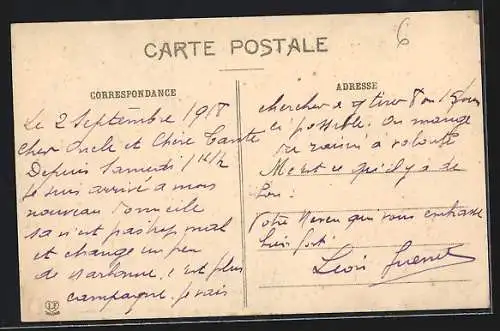 CARTE POSTALE
6
CORRESPONDANCE
Le 2 Septembre 1918
Cher Oncle et Chère Tante
Depuis Samedi 1h 1/2
je suis arrivé a mon
nouveau domicile
sa n'est pas trop mal
et change un peu
de Narbonne, c'est plus
campagne. je vais
ADRESSE
chercher a y tirer 8 ou 15 jours
si possible. On mange
du raisin a volonté
c'est ce qu'il y a de
bon.
Votre Neveu qui vous embrasse
bien fort
Léon